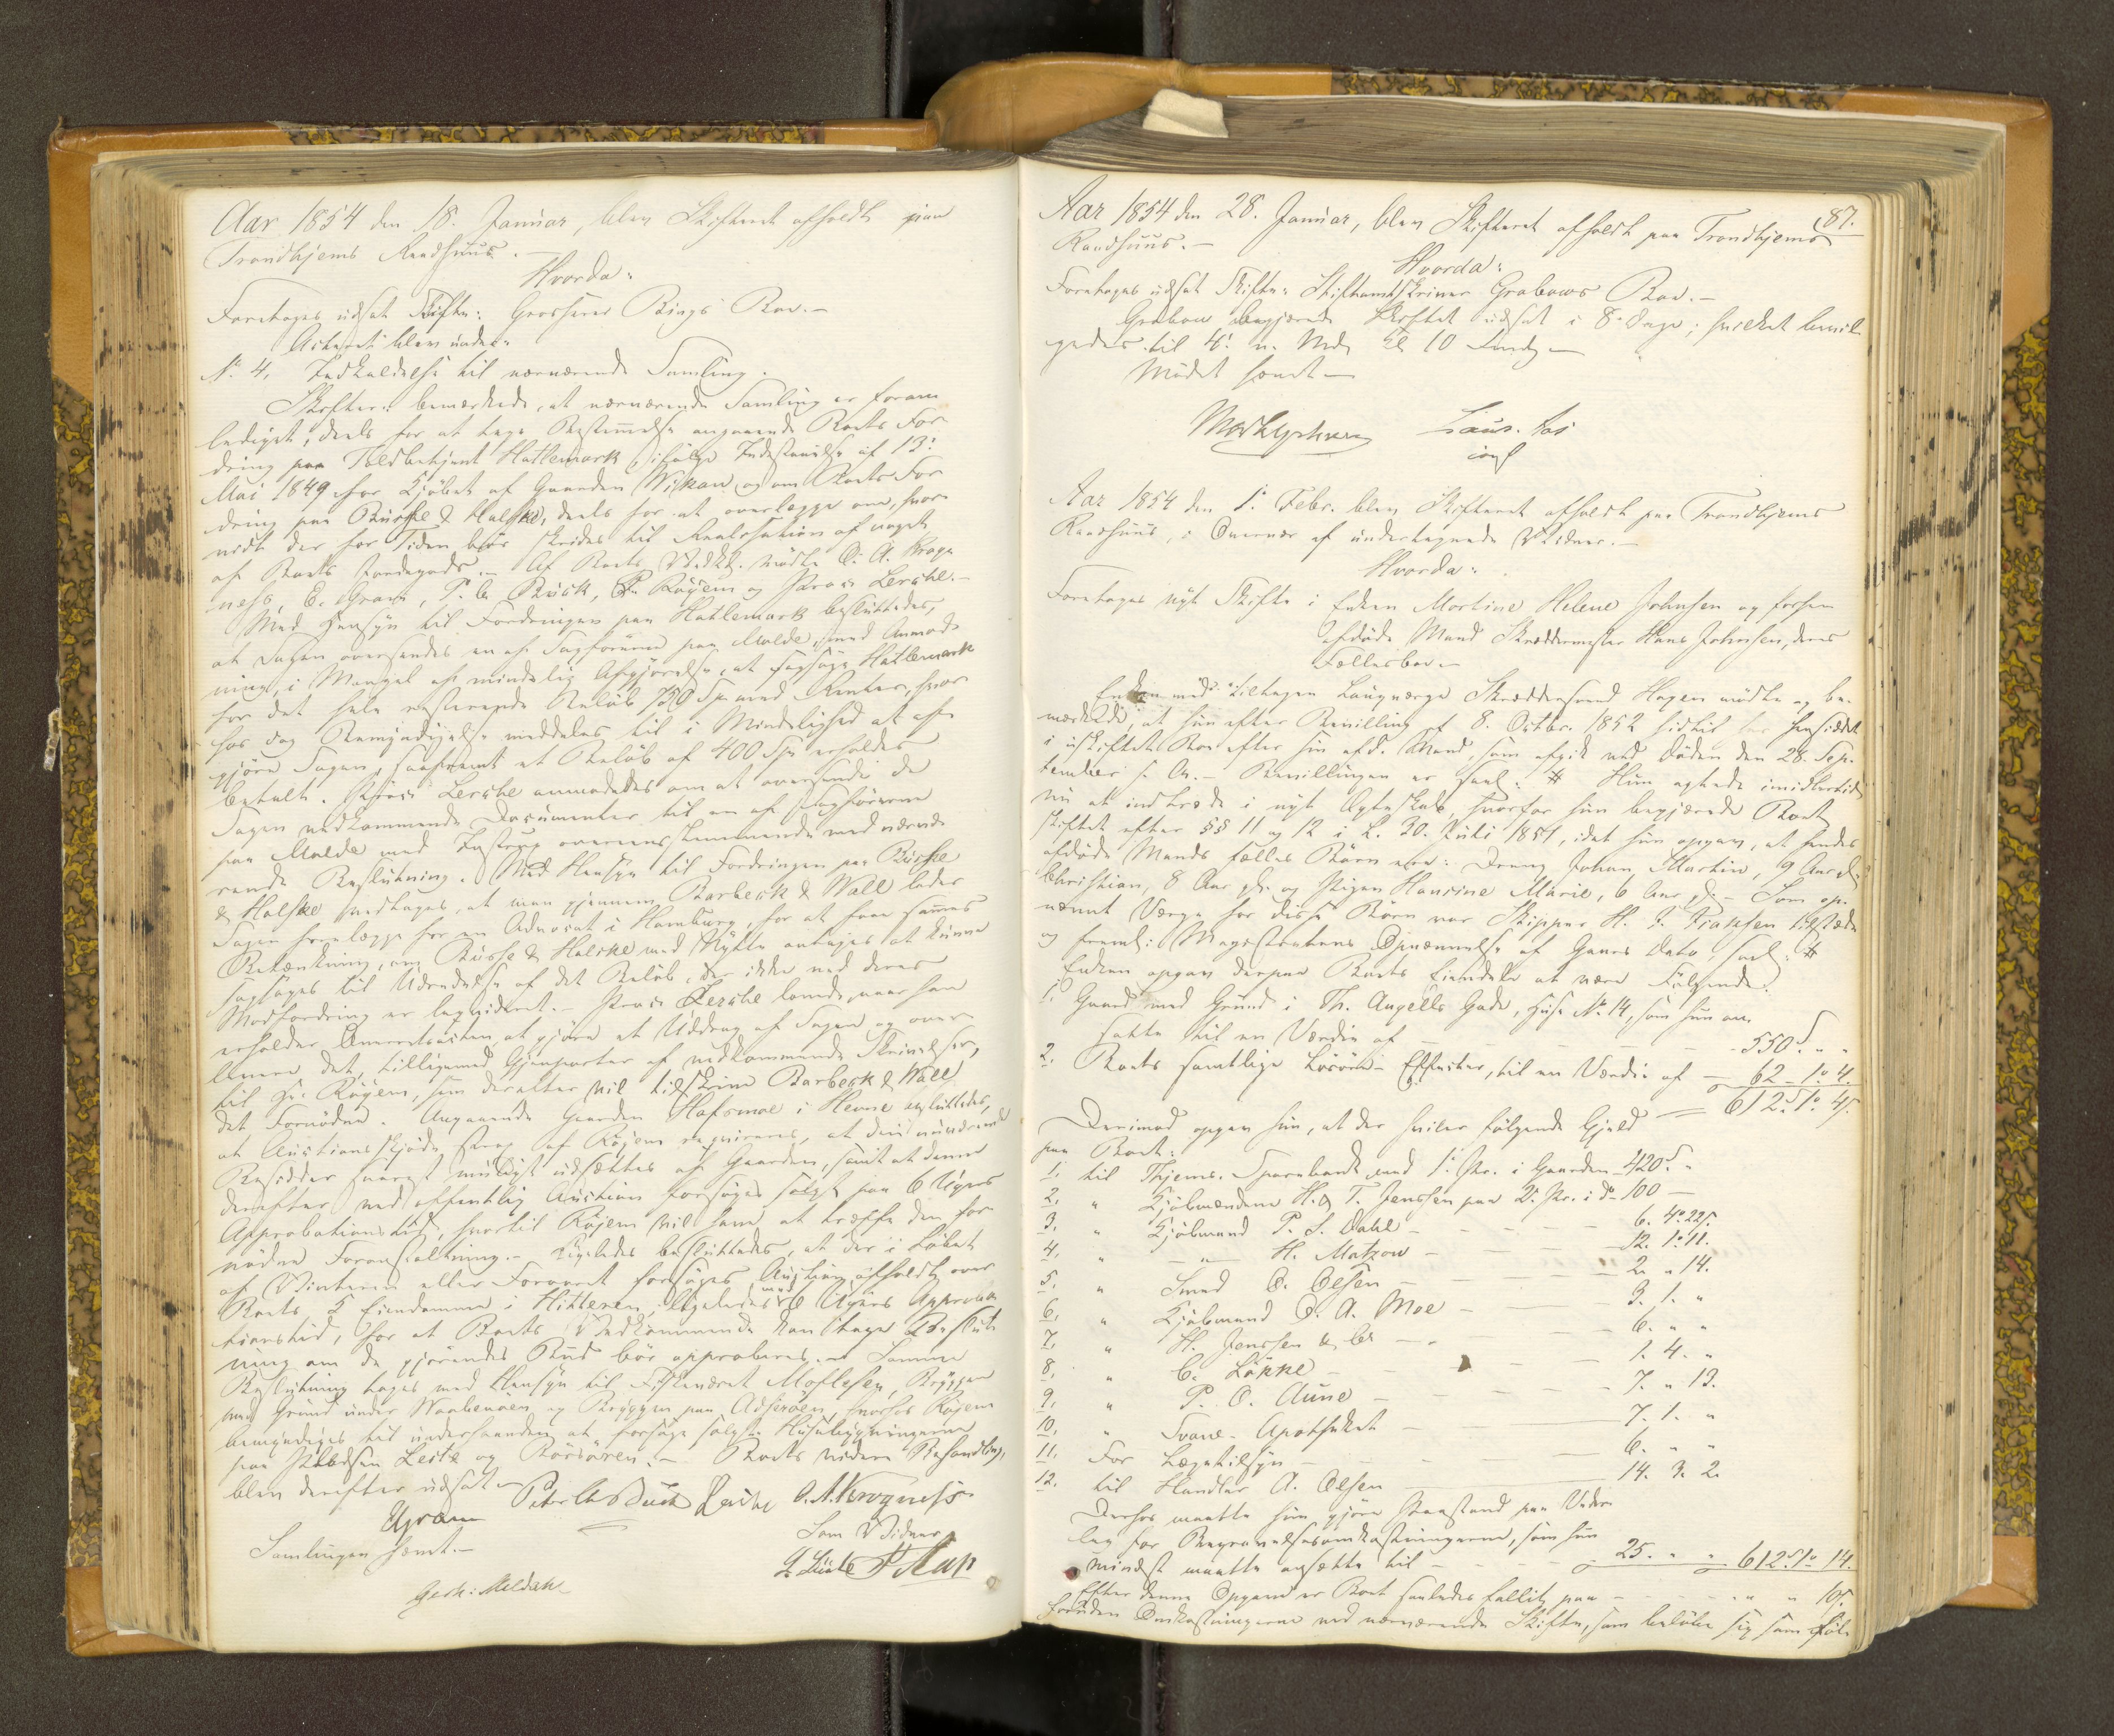 Aar 1854 den 18. Januar, blev Skifteret afholdt paa
Trondhjems Raadhuus.-
Hvorda:
Foretoges udsat Skifte: Grosserer Bings Boe.-
Acteret blev under:
No. 4, Indkaldelse til nærværende Samling.
Skifter: bemærkede, at nærværende Samling er foran
lediget, deels for at tage Bestemmelse angaaende Boets For
dring paa Toldbetjent Hatlemark, ifølge Indestaaelse af 13:
Mai 1849 for Kjøbet af Gaarden Wikan og om Boets For
dring paa Busse & Halske, deels for at overlægge om, hvor
vidt der for Tiden bør skrides til Realisation af noget
af Boets Jordegods.- Af Boets Vedkk. mødte O. A. Krog
ness, E. Gram, P. C. Buck, Røyem og Proc: Lerche.-
Med Hensyn til Fordringen paa Hatlemark besluttedes,
at Sagen oversendes en af Sagførerne paa Molde, med Anmod
ning, i Mangel af mindelig Afgjørelse, at sagsøge Hatlemark
for det hele resterende Beløb 750 Sp. med Renter, hvor
hos dog Bemyndigelse meddeles til i Mindelighed at af
gjøre Sagen, saafremt et Beløb af 400 Spd. erholdes
betalt. Proc: Lerche anmodedes om at oversende de
Sagen vedkommende Documenter til en af Sagførerne
paa Molde med Instrux overeensstemmende med nærvæ
rende Beslutning. Med Hensyn til Fordringen paa Busse
& Halske vedtoges, at man gjennem Barbeck & Wall lader
Sagen forelægge for en Advocat i Hamburg, for at faae sammes
Betænkning, om Busse & Halske med Nytte antages at kunne
sagsøges til Udredelse af det Beløb, der ikke ved deres
Modfordring er liqvideret.- Proc: Lerche lovede, naar han
erholder Anneretacten, at gjøre et Uddrag af Sagen og over
levere det, tilligemed Gjenparter af vedkommende Skrivelser,
til Hr. Røyem, som derefter vil tilskrive Barbeck & Wall
det Fornødne. Angaaende Gaarden Hafsmoe i Hevne besluttedes,
at Auctionsskjøde strax af Røyem reqvireres, at den nuværende
Besidder snarest muligst udsættes af Gaarden, samt at denne
derefter ved offentlig Auction forsøges solgt paa 6 Ugers
Approbationstid, hvortil Røyem vil have at træffe den for
nødne Foranstaltning.- Ligeledes besluttedes, at der i Løbet
af Vinteren eller Foraaret forsøges Auction afholdt over
Boets 2 Eiendomme i Hitteren, ligeledes med 6 Ugers Approba
tionstid, for at Boets Vedkommende kan tage Beslut
ning om de gjørendes Bud bør approberes. Samme
Beslutning toges med Hensyn til Fiskeværet Moflesen, Bryggen
med Grund under Waabenøen og Bryggen paa Adserøen, hvorhos Røyem
bemyndiges til underhaanden at forsøge solgte Huusbygningerne
paa Pladsen Leite og Børsøren.- Boets videre Behandling,
blev derefter udsat.-
EGram Peter C Buck Lerche O. A. Krogness
Samlingen hævet.-
Som Vidner
Gedk: Meldahl
87.
Aar 1854 den 28. Januar, blev Skifteret afholdt paa Trondhjems
Raadhuus.-
Hvorda:
Foretoges udsat Skifte: Stiftamtskriver Grabows Boe.-
Grabow begjærede Skiftet udsat i 8 Dage; hvilket bevil
gedes til 4: n. Md. Kl 10 Fmdg.-
Mødet hævet.-
Aar 1854 den 1: Febr. blev Skifteret afholdt paa Trondhjems
Raadhuus, i Overvær af undertegnede Vidner.-
Hvorda:
Foretoges nyt Skifte i Enken Martine Helene Johnsen og forhen
afdøde Mand Skræddermester Hans Johnsen, deres
Fællesboe.-
Enken med tiltagen Laugværge Skræddersvend Hagen mødte og be-
mærkede, at hun efter Bevilling af 8. Octbr. 1852 hidtil har hensiddet
i uskiftet Boe efter sin afd. Mand, som afgik ved Døden den 28. Sep-
tember s. A.- Bevillingen er saal: # Hun agtede imidlertid
nu at indtræde i nyt Ægteskab, hvorfor hun begjærede Boet
skiftet efter §§ 11 og 12 i L. 30. Juli 1851, idet hun opgav, at hendes
afdøde Mands fælles Børn ere: Dreng Johan Martin, 9 Aar gl.
Christian, 8 Aar gl. og Pigen Hansine Marie, 6 Aar gl.- Som op-
nævnt Værge for disse Børn var Skipper H. tilstæde
og freml: Magistratens Opnævnelse af Gaars Dato, saal: #
Enken opgav derpaa Boets Eiendele at være Følgende.
1. Gaard med Grund i Th. Angells Gade, Huus No 14, som hun an-
satte til en Værdie af - - - - 550 " "
2. Boets samtlige Løsøre-Effecter, til en Værdie af - 62 - 1. 4.
612. 1. 4.
Derimod opgav hun, at der hviler følgende Gjeld
paa Boet:
1. til Thjems. Sparebank med 1. Pr. i Gaarden 420 "
2. " Kjøbmændene H. & T. Jenssen paa 2. Pr. i do 100 -
3. " Kjøbmand P. S. Dahl - - - 6. 4. 22.
4. " - " - H. Matzow - - - 12. 1. 11.
5. " Smed O. Olsen - - - 2. " 14.
6. " Kjøbmand O. A. Moe - - - 3. 1. "
7. " H. Jenssen & Co - - - 6. " "
8. " C. Løkke - - - 1. 4. "
9. " P. O. Aune - - - 7. " 13.
10. " Svane-Apotheket - - - 7. 1. "
11. For Lægetilsyn - - - 6. " "
12. til Handler A. Olsen - - - 14. 3. 2.
Derhos maatte hun gjøre Paastand paa Veder-
lag for Begravelsesomkostningerne, som hun
mindst maatte ansætte til - - - 25. " " 612. 1. 14.
Efter denne Opgave er Boet saaledes fallit paa - - - " " 10.
foruden Omkostningerne ved nærværende Skifte, som beløber sig som Føl-